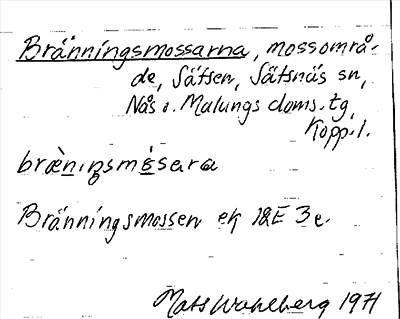 Bränningsmossarna, mossområ-
de, Sätsen, Sätsnäs sn,
Nås o. Malungs doms. tg,
Kopp. l.
bræ̀niŋsmɵ́sara
Bränningsmossen ek 12E 3e.
Mats Wahlberg 1971